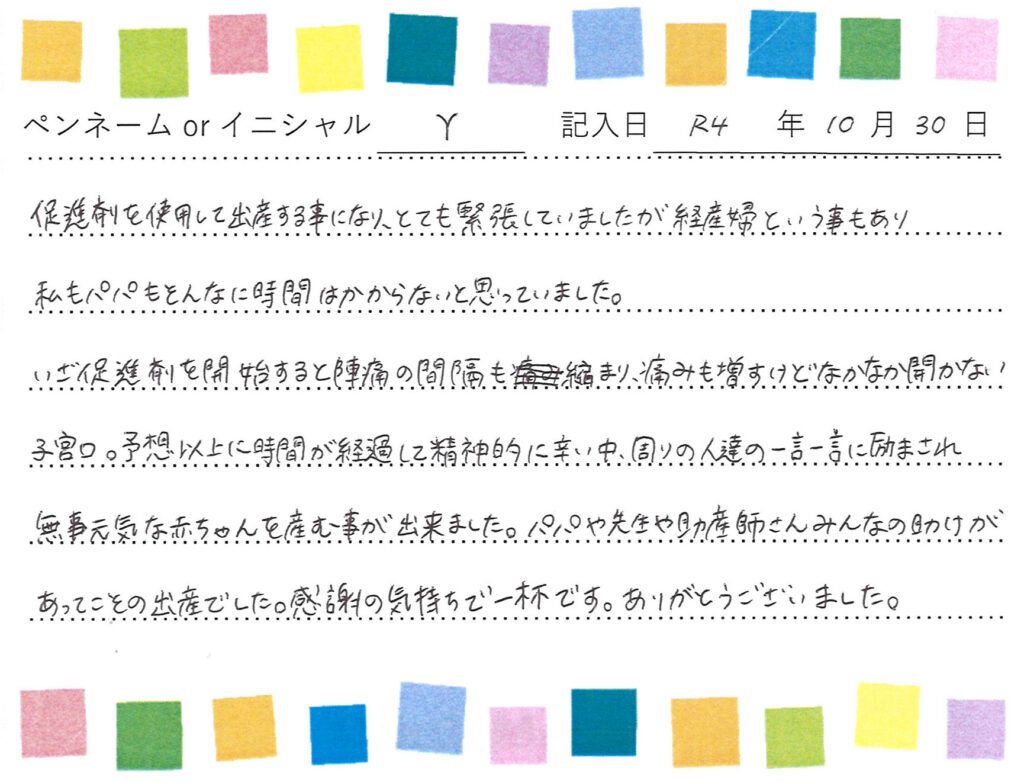 ペンネーム or イニシャル Y 記入日 R4 年 10 月 30 日
促進剤を使用して出産する事になり、とても緊張していましたが経産婦という事もあり
私もパパもそんなに時間はかからないと思っていました。
いざ促進剤を開始すると陣痛の間隔も縮まり、痛みも増すけどなかなか開かない
子宮口。予想以上に時間が経過して精神的に辛い中、周りの人達の一言一言に励まされ
無事元気な赤ちゃんを産む事が出来ました。パパや先生や助産師さんみんなの助けが
あってことの出産でした。感謝の気持ちで一杯です。ありがとうございました。